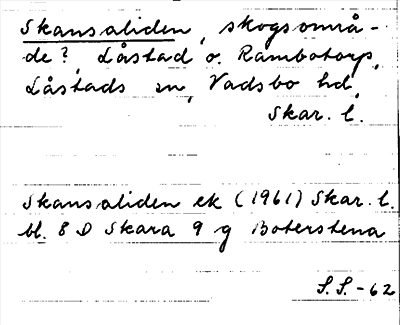 Skansaliden, skogsområ-
de?, Låstad o. Rambotorp,
Låstads sn, Vadsbo hd,
Skar. l.
Skansaliden ek (1961) Skar. l.
bl. 8 D Skara 9 g Boterstena
S.S.-62